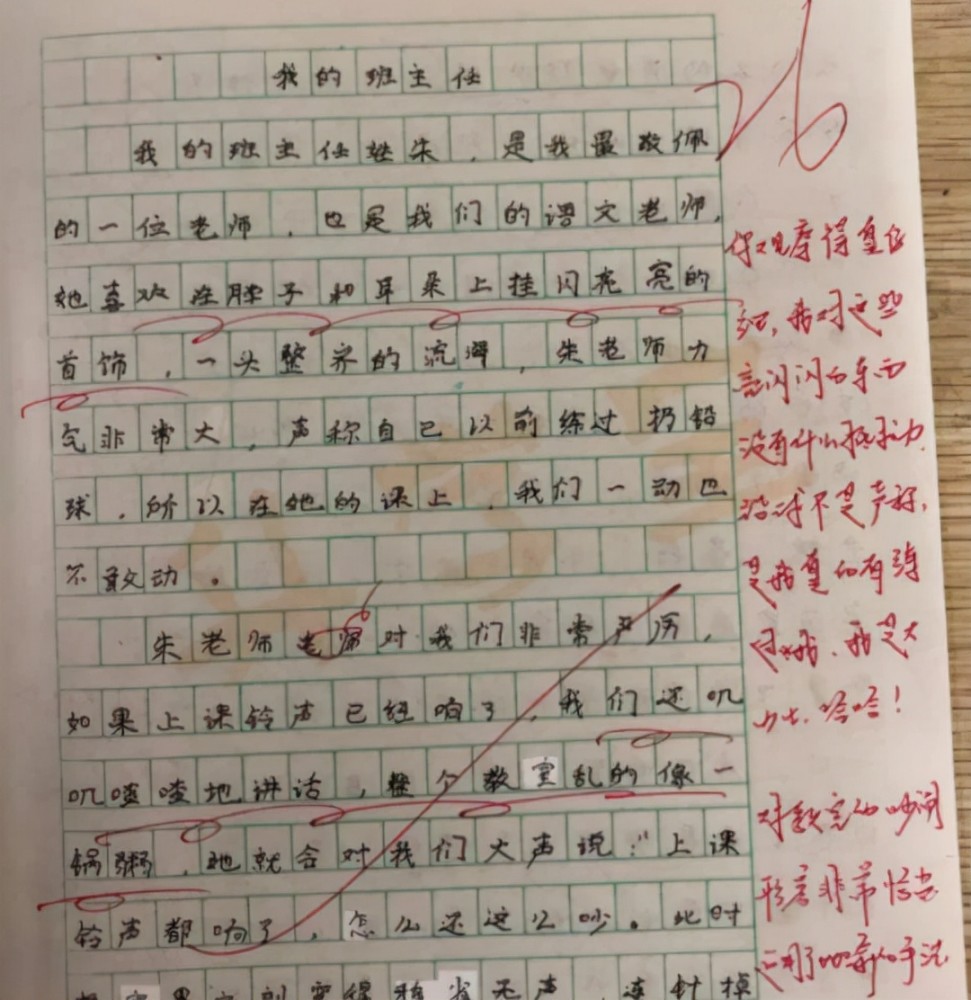 我的班主任
26
我的班主任姓朱，是我最敬佩
的一位老师，也是我们的语文老师，
她喜欢在脖子和耳朵上挂闪亮亮的
首饰，一头整齐的流海，朱老师力
气非常大，声称自己以前练过扔铅
球，所以在她的课上，我们一动也
不敢动。
朱老师老师对我们非常严厉，
如果上课铃声已经响了，我们还叽
叽喳喳地讲话，整个教室乱的像一
锅粥，她就会对我们大声说：“上课
铃声都响了，怎么还这么吵。此时
教室里立刻变得鸦雀无声，连针掉
你观察得真仔
细，我对这些
亮闪闪的东西
没有什么抵抗力
没，我不是声称，
是我真的有练
过哦，我是大
力士，哈哈！
对教室的吵闹
形容非常恰当
运用了比喻的手法